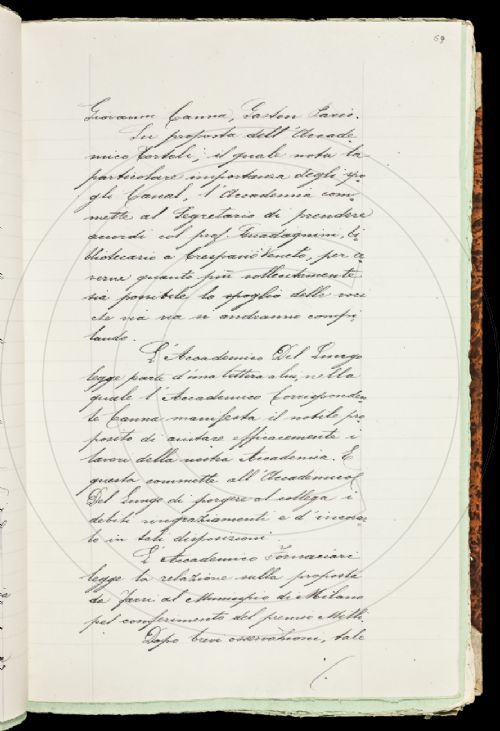 69
Giovanni Canna, Gaston Paris.
Su proposta dell'Accade
mico Tortoli, il quale nota la
particolare importanza degli spo
gli Canal, l'Accademia com-
mette al Segretario di prendere
accordi col prof. Guadagnini, bi-
bliotecario a Crespano Veneto, per a-
verne quanto più sollecitamente
sia possibile lo spoglio delle voci
che via via si andranno compi-
lando.
L'Accademico Del Lungo
legge parte d'una lettera a lui, nella
quale l'Accademico Corrisponden-
te Canna manifesta il nobile pro-
posito di aiutare efficacemente i
lavori della nostra Accademia. E
questa commette all'Accademico
Del Lungo di porgere al collega i
debiti ringraziamenti e d'incorar-
lo in tali disposizioni.
L'Accademico Fornaciari
legge la relazione sulla proposta
da farsi al Municipio di Milano
pel conferimento del premio Mylli.
Dopo brevi osservazioni, tale